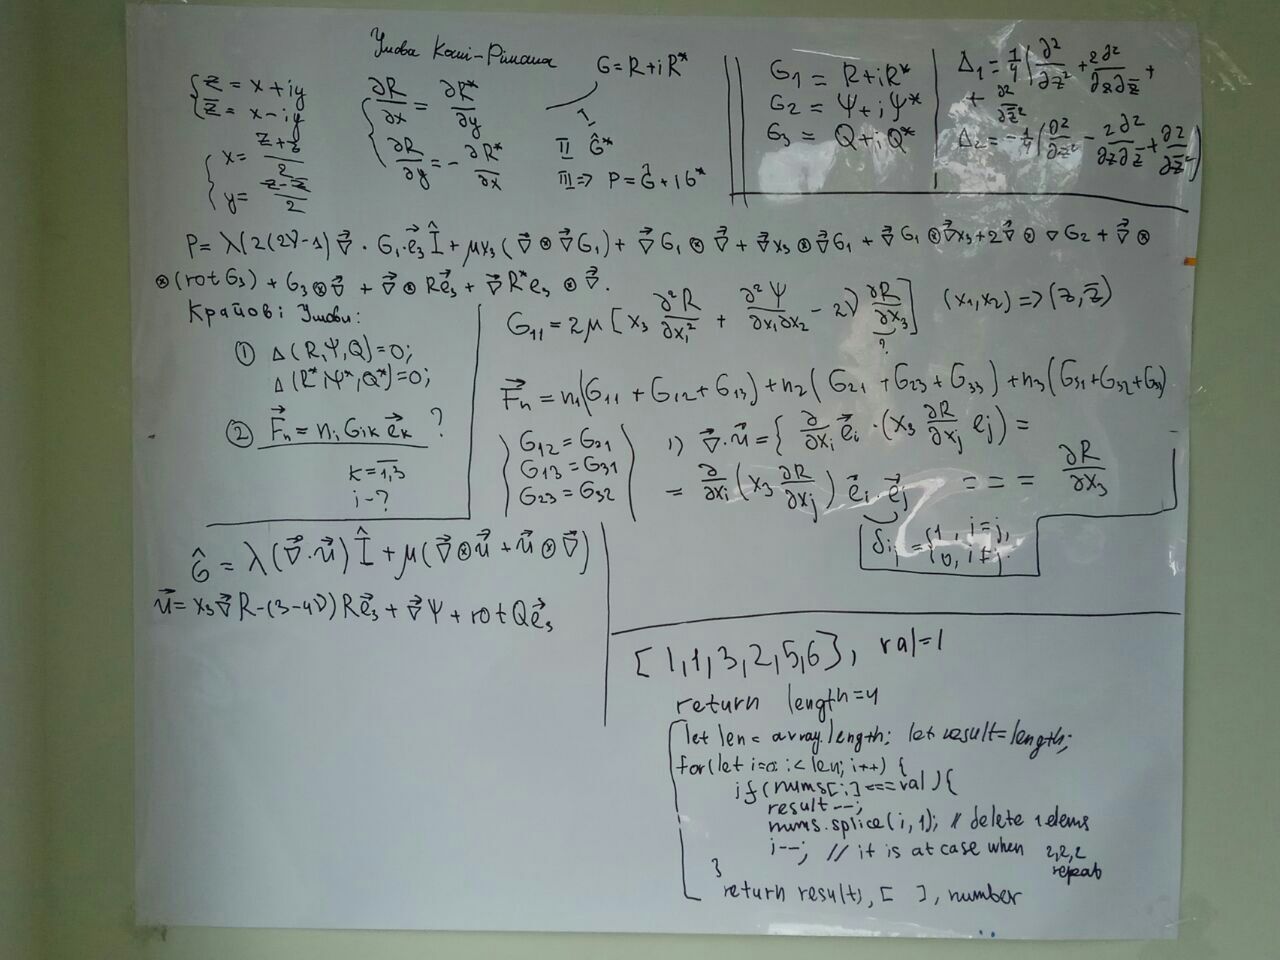 Умова Коші-Рімана
{ z = x + iy
z̄ = x - iy
{ x = (z + z̄)/2
y = (z - z̄)/2
{ ∂R/∂x = ∂R*/∂y
∂R/∂y = - ∂R*/∂x
G = R + i R*
I
II Ĝ*
III => P = Ĝ + i G*
G1 = R + iR*
G2 = Ψ + i Ψ*
G3 = Q + i Q*
Δ1 = 1/4 (∂²/∂z² + 2∂²/∂z∂z̄ +
+ ∂²/∂z̄²
Δ2 = -1/4 (∂²/∂z² - 2∂²/∂z∂z̄ + ∂²/∂z̄²)
P = λ(2(2ν-1) ∇⃗ · G1·e⃗3 Î + μx3 (∇⃗ ⊗ ∇⃗G1) + ∇⃗G1 ⊗ ∇⃗ + ∇⃗x3 ⊗ ∇⃗G1 + ∇⃗G1 ⊗ ∇⃗x3 + 2∇⃗ ⊗ ∇G2 + ∇⃗ ⊗
⊗ (rot G3) + G3 ⊗ ∇⃗ + ∇⃗ ⊗ Re⃗3 + ∇⃗R*e3 ⊗ ∇⃗.
Крайові Умови:
① Δ(R,Ψ,Q)=0;
Δ(R*,Ψ*,Q*)=0;
② F⃗n = ni Gik e⃗k ?
k = 1,3
i - ?
G11 = 2μ [ x3 ∂²R/∂x1² + ∂²Ψ/∂x1∂x2 - 2ν ∂R/∂x3 ] (x1,x2) => (z, z̄)
?
F⃗n = n1(G11 + G12 + G13) + n2(G21 + G23 + G33) + n3(G31+G32+G3)
G12 = G21
G13 = G31
G23 = G32
1) ∇⃗·u⃗ = { ∂/∂xi e⃗i · (x3 ∂R/∂xj ej) =
= ∂/∂xi (x3 ∂R/∂xj) e⃗i · e⃗j = = = ∂R/∂x3
δij = {1, i=j,
{0, i≠j.
Ĝ = λ(∇⃗·u⃗) Î + μ(∇⃗ ⊗ u⃗ + u⃗ ⊗ ∇⃗)
u⃗ = x3∇⃗R - (3-4ν) Re⃗3 + ∇⃗Ψ + rot Qe⃗3
[ 1,1,3,2,5,6], val=1
return length=4
let len = array.length; let result=length;
for(let i=0; i<len; i++) {
if (nums[i] === val) {
result--;
nums.splice(i, 1); // delete 1 elems
i--; // it is at case when 2,2,2
repeat
}
return result, [ ], number